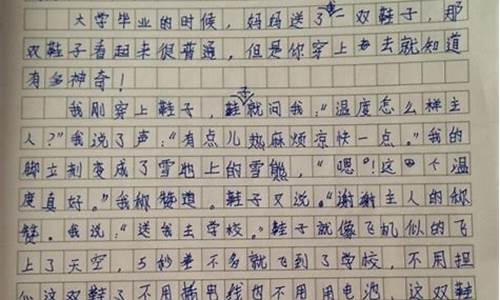 大学毕业的时候,妈妈送了一双鞋子,那
双鞋子看起来很普通,但是你穿上去就知道
有多神奇!
我刚穿上鞋子,鞋子就问我:“温度怎么样主
人?”我说了声:“有点儿热麻烦凉快一点。”我的
脚立刻变成了雪地上的雪熊,“嗯!这个温
度真好。”我称赞道。鞋子又说:“谢谢主人的称
赞。我说:“送我去学校。”鞋子就像飞机似的飞
上了天空,5秒差不多就飞到了学校,不用担
心这双鞋子不用插电线也不用用电池,这双鞋